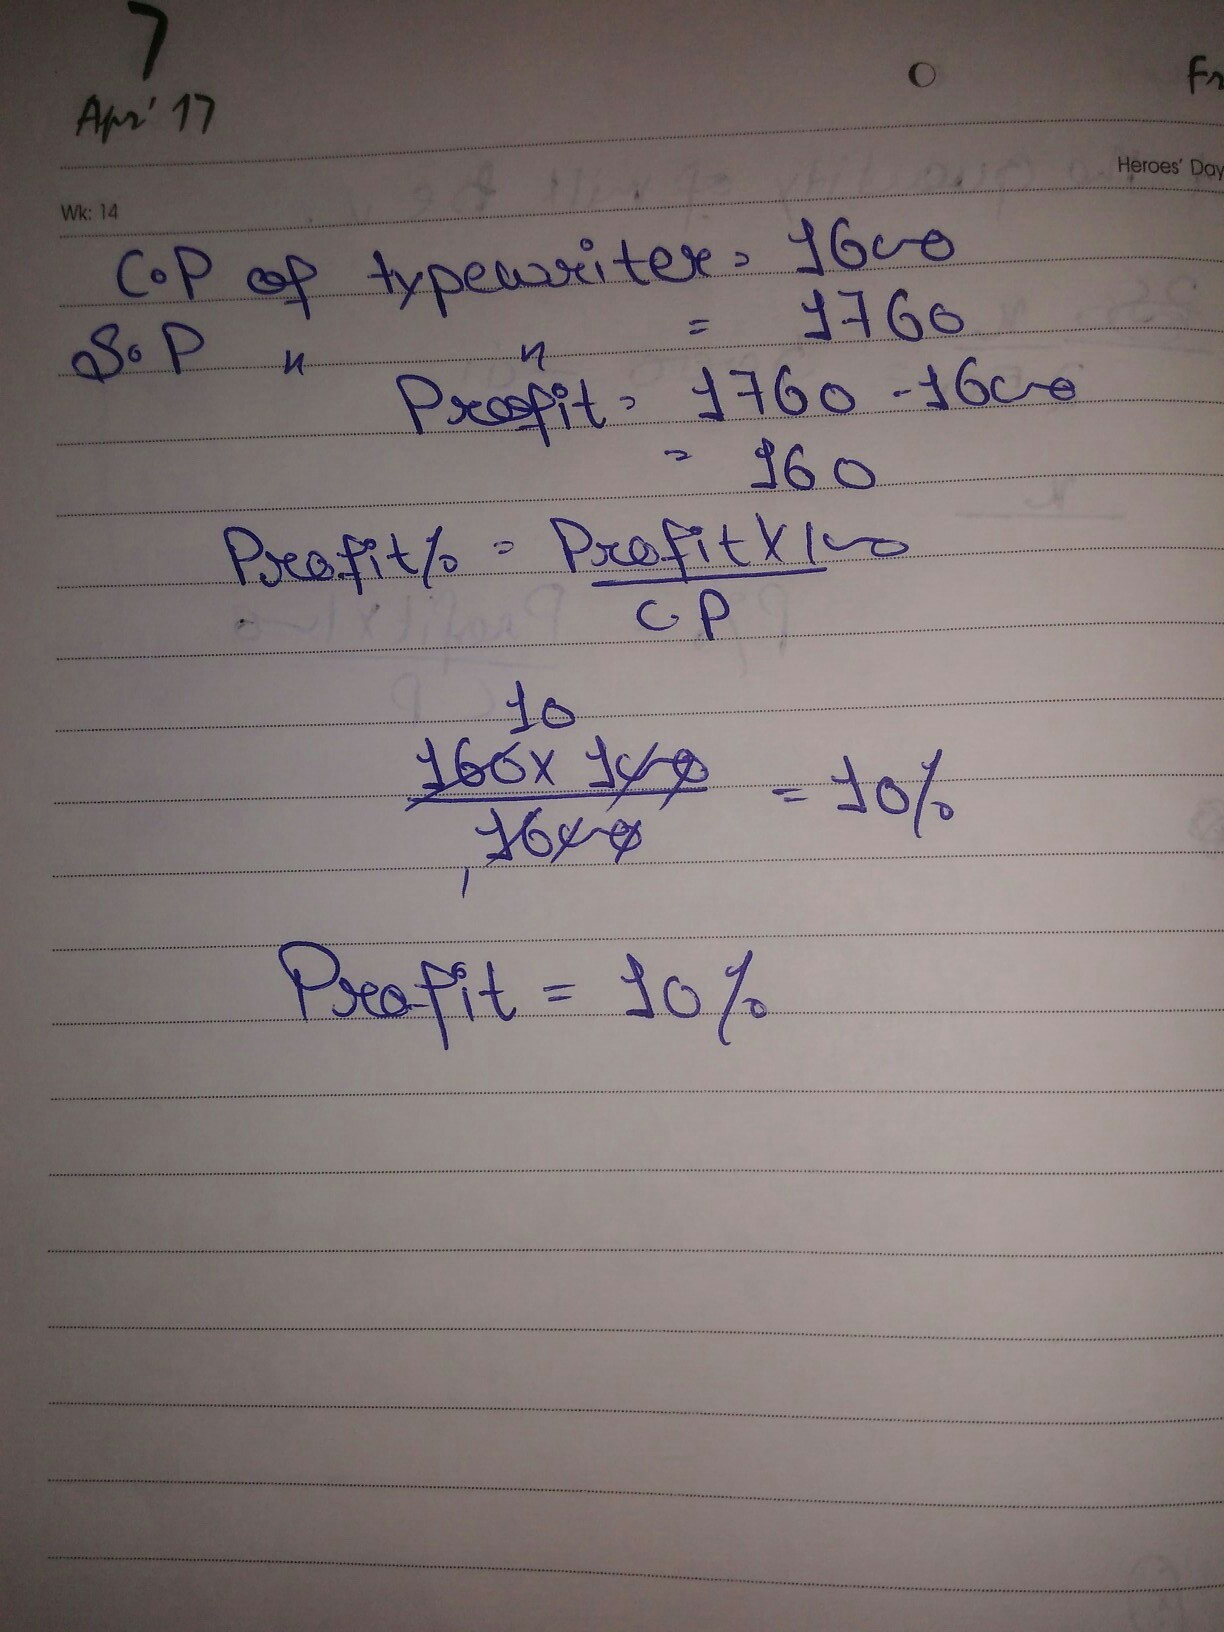 7
Apr' 17
Fr
Heroes' Day
Wk: 14
C.P of typewriter = 1600
S.P " " = 1760
Profit = 1760 - 1600
= 160
Profit% = Profit X 100
CP
10
160 x 100
1600
= 10%
1
Profit = 10%